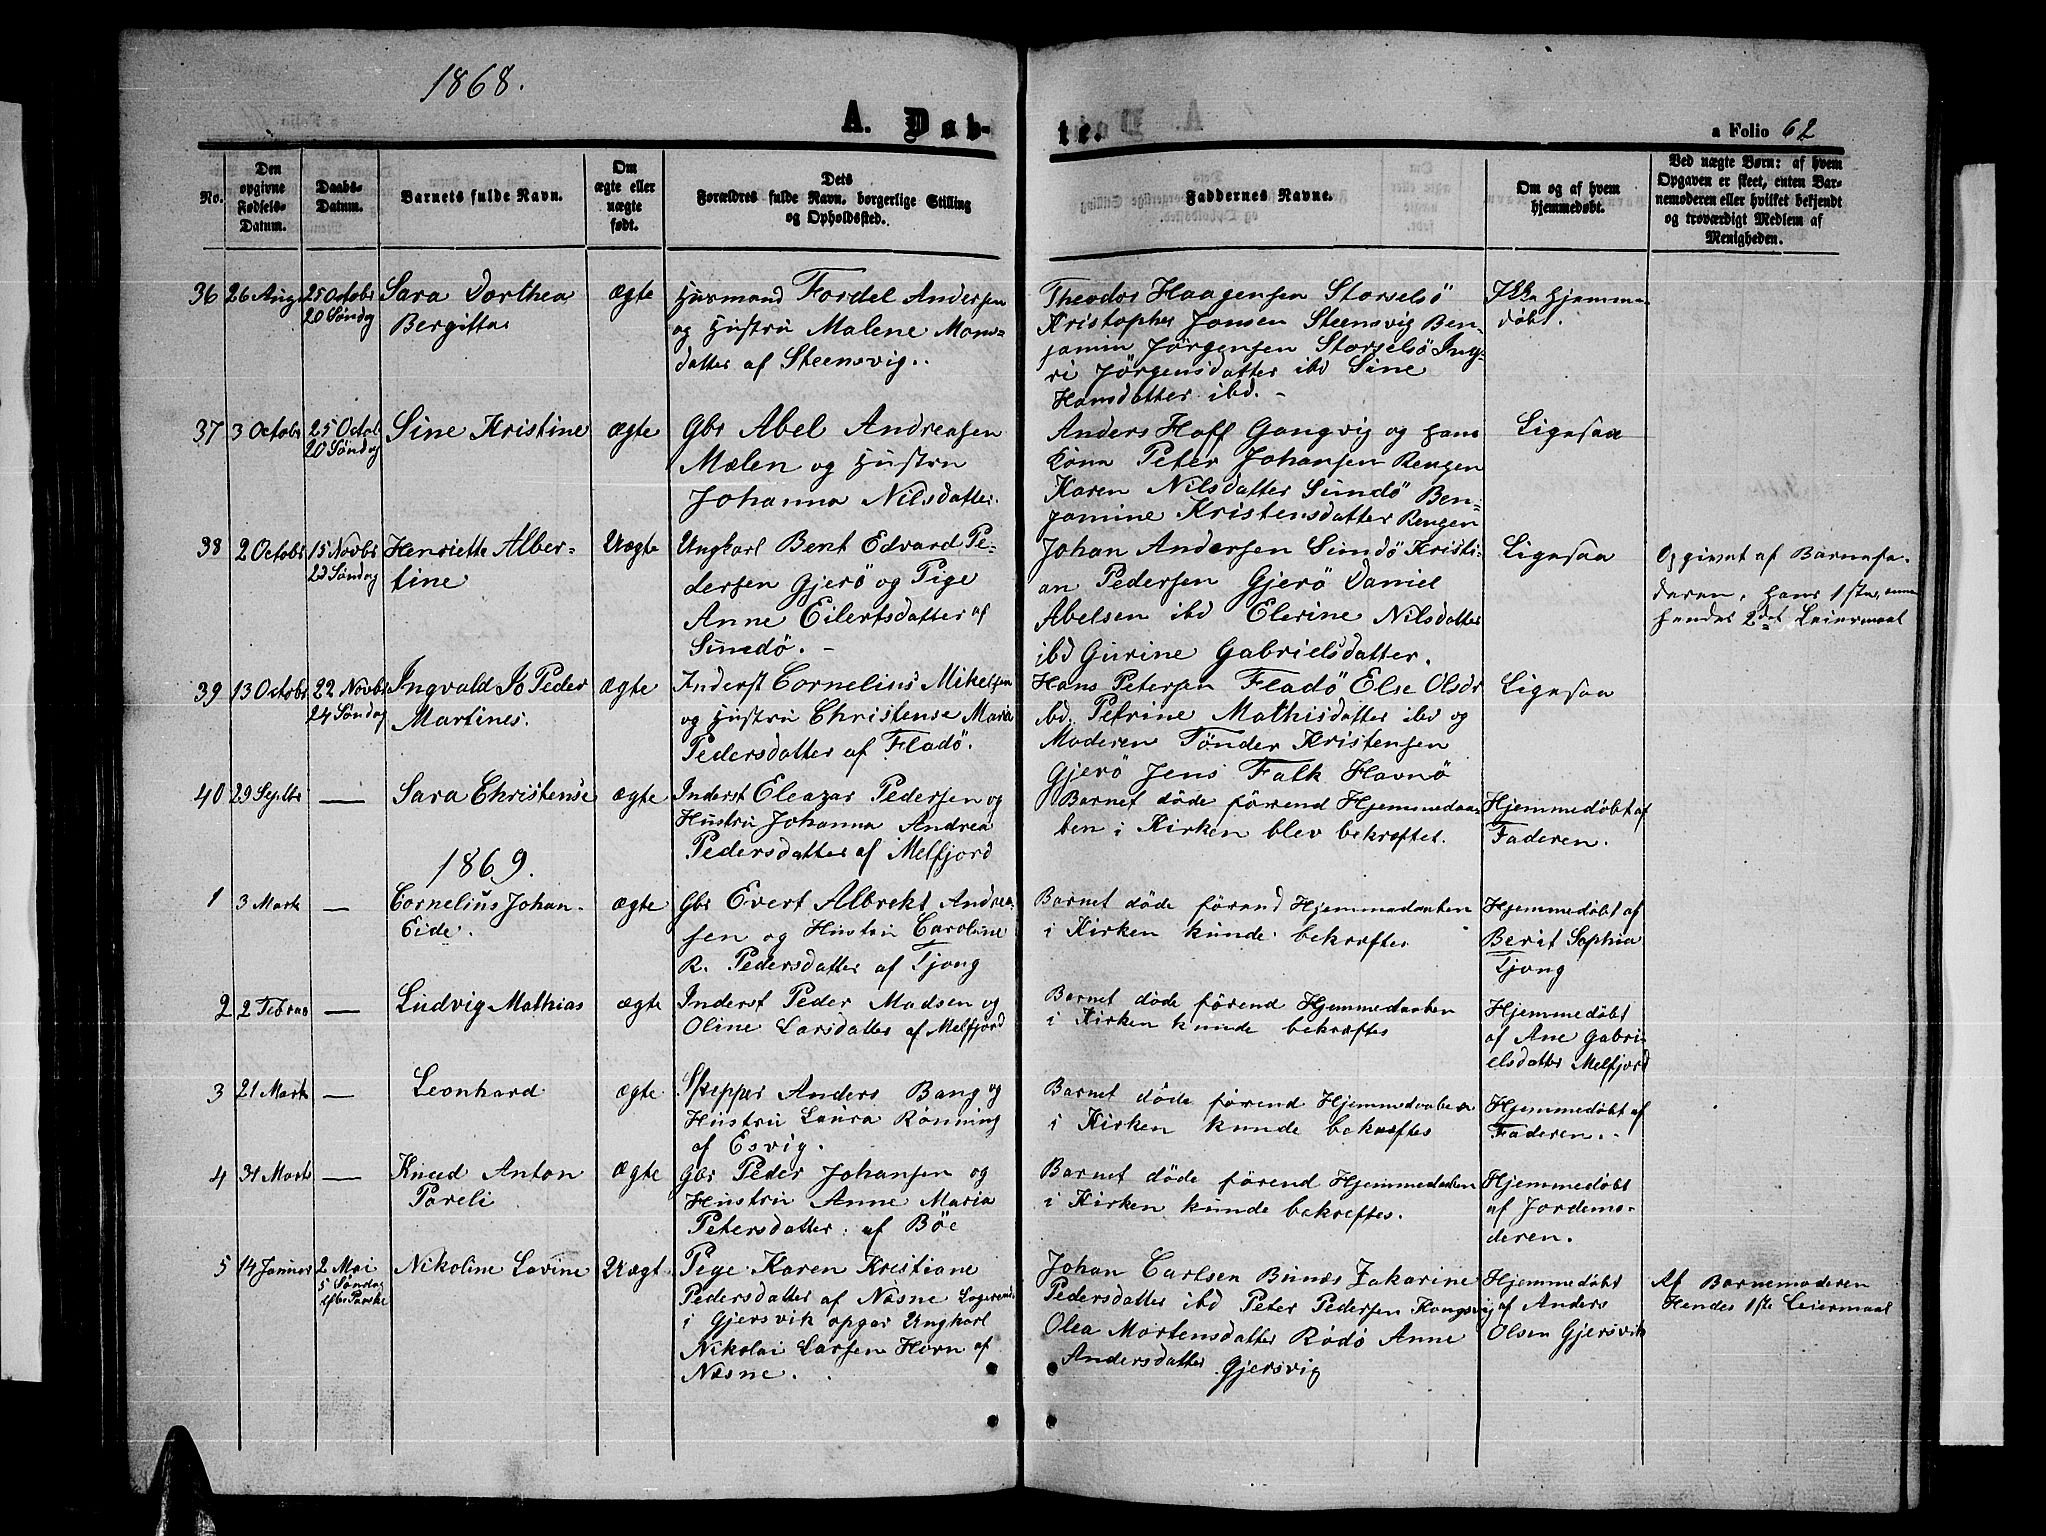 1868.
A. Døb-
te.
a Folio 62
No.
Den
opgivne
Fødsels-
Datum.
Daabs-
Datum.
Barnets fulde Navn.
Om
ægte eller
uægte
født.
Dets
Forældres fulde Navn, borgerlige Stilling
og Opholdssted.
Faddernes Navne.
Om og af hvem
hjemmedøbt.
Ved uægte Børn: af hvem
Opgaven er skeet, enten Bar-
nemoderen eller hvilket bekjendt
og troværdigt Medlem af
Menigheden.
36
26 Aug
25 Octobr
20 Søndg
Sara Dorthea
Bergitta
ægte
Husmand Fordel Andersen
og Hustru Malene Mons-
datter af Steensvig.
Theodor Haagensen Storselsö
Kristopher Jonsen Steensvig Ben-
jamin Jörgensen Storselsö Ing-
ri Jörgensdatter ibd Sine
Hansdatter ibd. -
Ikke hjemme
döbt.
37
3 Octobr
25 Octob
20 Søndag
Sine Kristine
ægte
Gbr Abel Andreasen
Mælen og Hustru
Johanna Nilsdatter.
Anders Hoff Gangvig og hans
Kona Peter Johansen Rengen
Karen Nilsdatter Sundö Ben-
jamine Kristensdatter Rengen
Ligesaa
38
2 Octobr
15 Novbr
23 Søndag
Henriette Alber-
tine
Uægte
Ungkarl Bent Edvard Pe-
dersen Gjerö og Pige
Anne Eilertsdatter af
Sundö. -
Johan Andersen Sundö Kristi-
an Pedersen Gjerö Daniel
Abelsen ibd Elerine Nilsdatter
ibd Gurine Gabrielsdatter.
Ligesaa
Opgivet af Barnefa-
deren, hans 1ste,
hendes 2det Leiermaal
39
13 Octobr
22 Novbr
24 Søndag
Ingvald Jo Peder
Martines.
ægte
Inderst Cornelius Mikelsen
og Hustru Christense Maria
Pedersdatter af Fladö.
Hans Petersen Fladö Else Olsdr
ibd. Petrine Mathisdatter ibd og
Moderen Tönder Kristensen
Gjerö Jens Falk Havnö
Ligesaa
40
29 Septbr
—
Sara Christense
ægte
Inderst Eleazar Pedersen og
Hustru Johanna Andrea
Pedersdatter af Melfjord
Barnet döde förend Hjemmedaa-
ben i Kirken blev bekræftet.
Hjemmedöbt af
Faderen.
1869.
1
3 Marts
—
Cornelius Johan
Eide.
ægte
Gbr Evert Albrekt Andrea-
sen og Hustru Caroline
R. Pedersdatter af Tjong
Barnet döde förend Hjemmedaaben
i Kirken kunde bekræftes
Hjemmedöbt af
Berit Sophia
Tjong
2
2 Februar
—
Ludvig Mathias
ægte
Inderst Peder Madsen og
Oline Larsdatter af Melfjord
Barnet döde förend Hjemmedaaben
i Kirken kunde bekræftes
Hjemmedöbt
af Ane Gabri-
elsdatter Melfjord
3
21 Marts
—
Leonhard
ægte
Skipper Anders Bang og
Hustru Laura Rönning
af Esvig.
Barnet döde förend Hjemmedaaben
i Kirken kunde bekræftes
Hjemmedöbt af
Faderen.
4
31 Marts
—
Knud Anton
Pareli
ægte
Gbr Peder Johansen og
Hustru Anne Maria
Petersdatter af Böe
Barnet döde förend Hjemmedaaben
i Kirken kunde bekræftes.
Hjemmedöbt
af Jordemo-
deren.
5
14 Januar
2 Mai
5 Søndag
efter Paaske
Nikoline Lovine
Uægt
Pige Karen Kristiane
Pedersdatter af Næsne Logerend.
i Gjersvik opgav Ungkarl
Nikolai Larsen Horn af
Næsne.
Johan Carlsen Bunæs Zakarine
Pedersdatter ibd Peter Pedersen Kongsvig
Olea Mortensdatter Rödö Anne
Andersdatter Gjersvig
Hjemmedöbt
af Anders
Olsen Gjersvik
Af Barnemoderen
Hendes 1ste Leiermaal